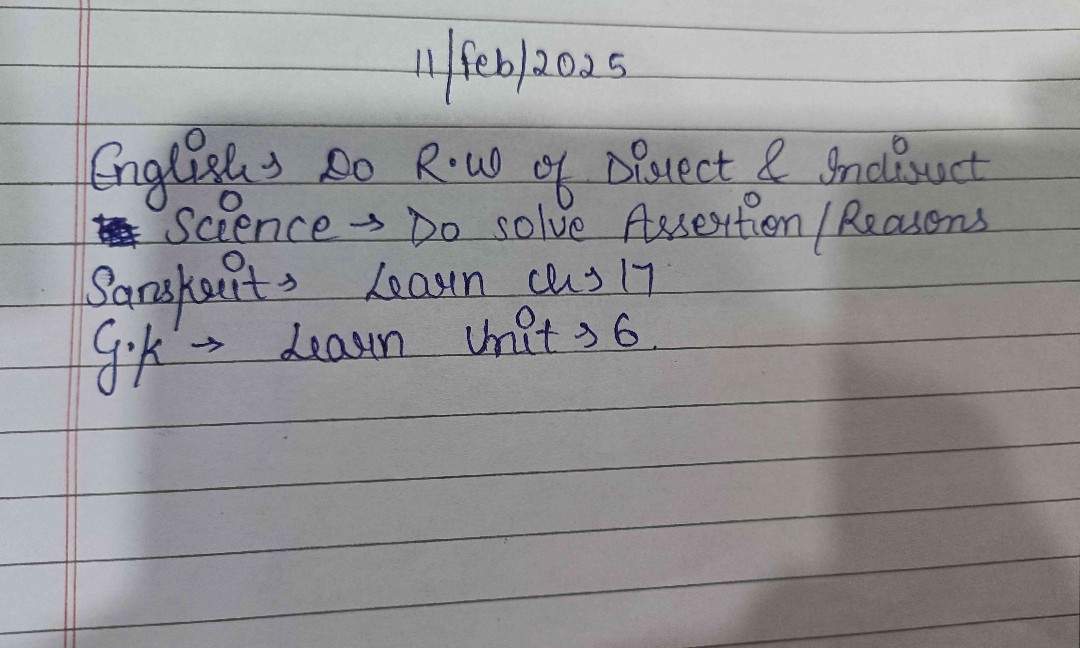 11/feb/2025
English → Do R.W of Direct & Indirect
Science → Do solve Assertion/Reasons
Sanskrit → Learn ch → 17
G.K → Learn Unit → 6.